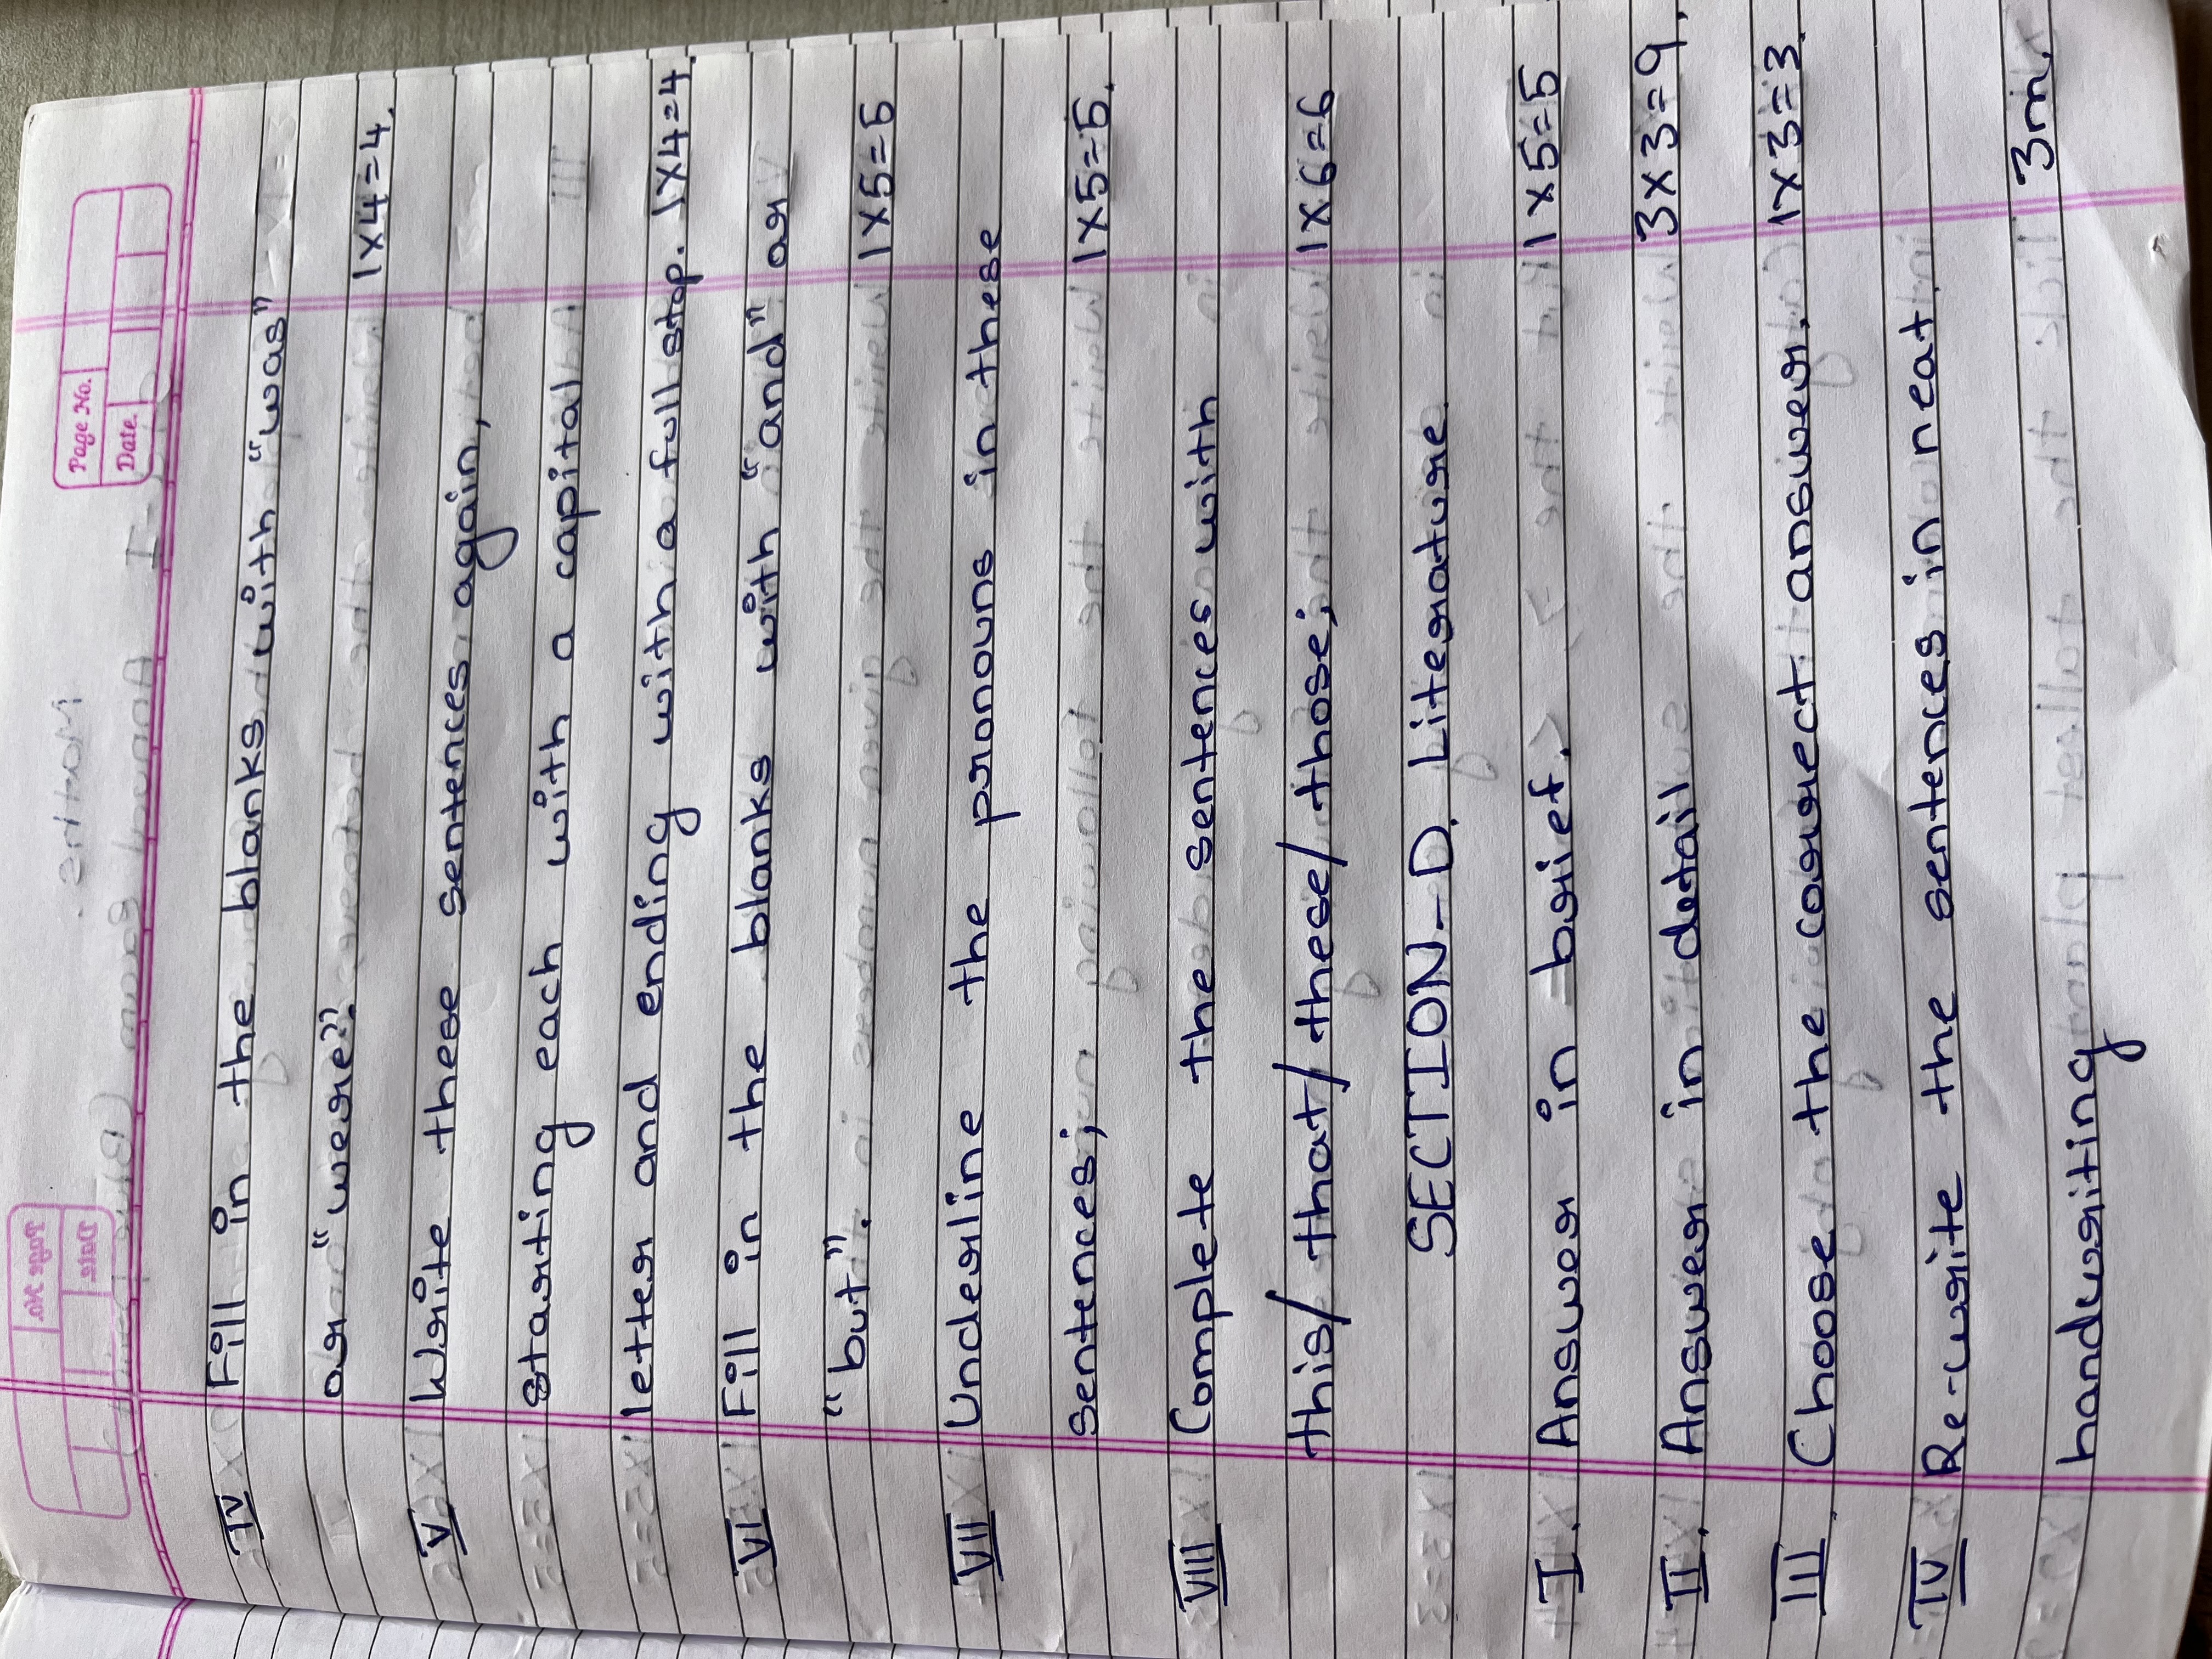 Page No.
Date.
IV Fill in the blanks with "was"
or "were". 1x4=4.
V Write these sentences again,
Starting each with a capital
letter and ending with a full stop. 1x4=4.
VI Fill in the blanks with "and" or
"but". 1x5=5
VII Underline the pronouns in these
Sentences; 1x5=5.
VIII Complete the sentences with
this/ that/ these/ those; 1x6=6
SECTION-D. Literature.
I. Answer in brief. 1x5=5
II. Answer in detail 3x3=9.
III. Choose the correct answer. 1x3=3.
IV Re-write the sentences in neat
handwriting 3m.